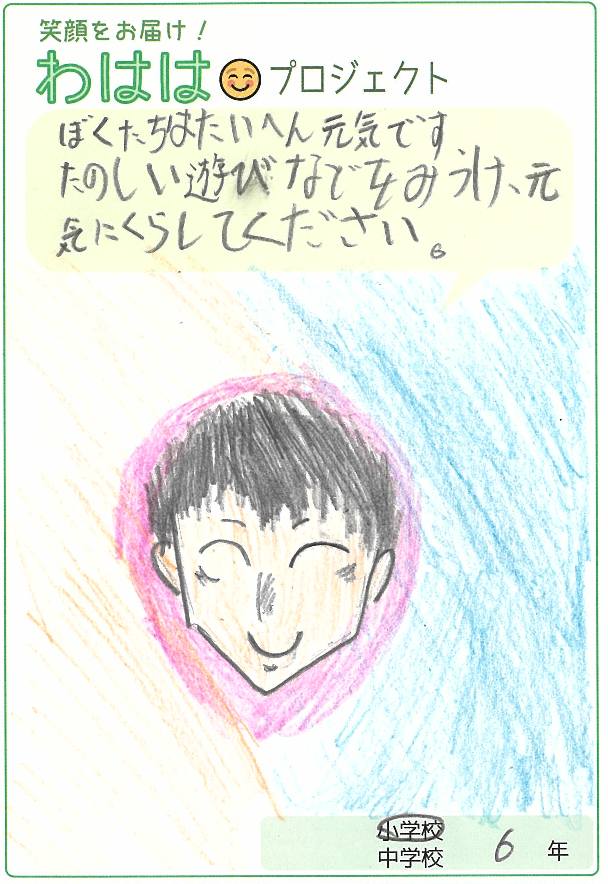 笑顔をお届け!
わはは プロジェクト
ぼくたちはたいへん元気です
たのしい遊びなでをみうけ、元
気にくらしてください。
小学校
中学校
6 年